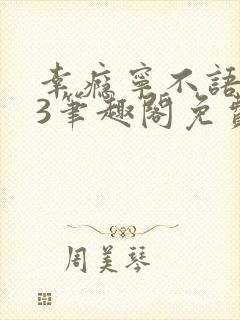 幸瘾寧不語
3筆趣閣免費
周美琴